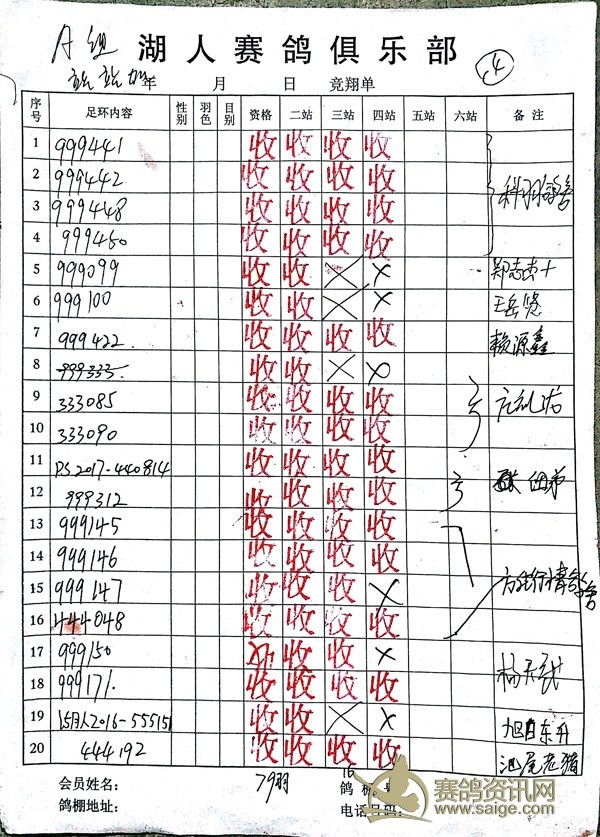 A组 湖人赛鸽俱乐部 4
年 月 日 竞翔单
序号 足环内容 性别 羽色 目别 资格 二站 三站 四站 五站 六站 备注
1 999441 收 收 收 收
2 999442 收 收 收 收
3 999448 收 收 收 收
4 999450 收 收 收 收
5 999099 收 收 × ×
6 999100 收 收 × ×
7 999422. 收 收 收 收 赖源鑫
8 999333. 收 收 ×
9 333085 收 收 收 收
10 333090 收 收 收 收
11 2017-440814 收 收 收 收
12 999312 收 收 收 收
13 999145 收 收 收 收
14 999146 收 收 收 收
15 999147 收 收 收 ×
16 444048 收 收 收 收
17 999150 收 收 收 ×
18 999171. 收 收 收 收
19 2016-555151 收 收 × × 旭日东升
20 444192 收 收 收 收
会员姓名: 79羽
鸽棚地址: 电话号码:
赛鸽资讯网
www.saige.com